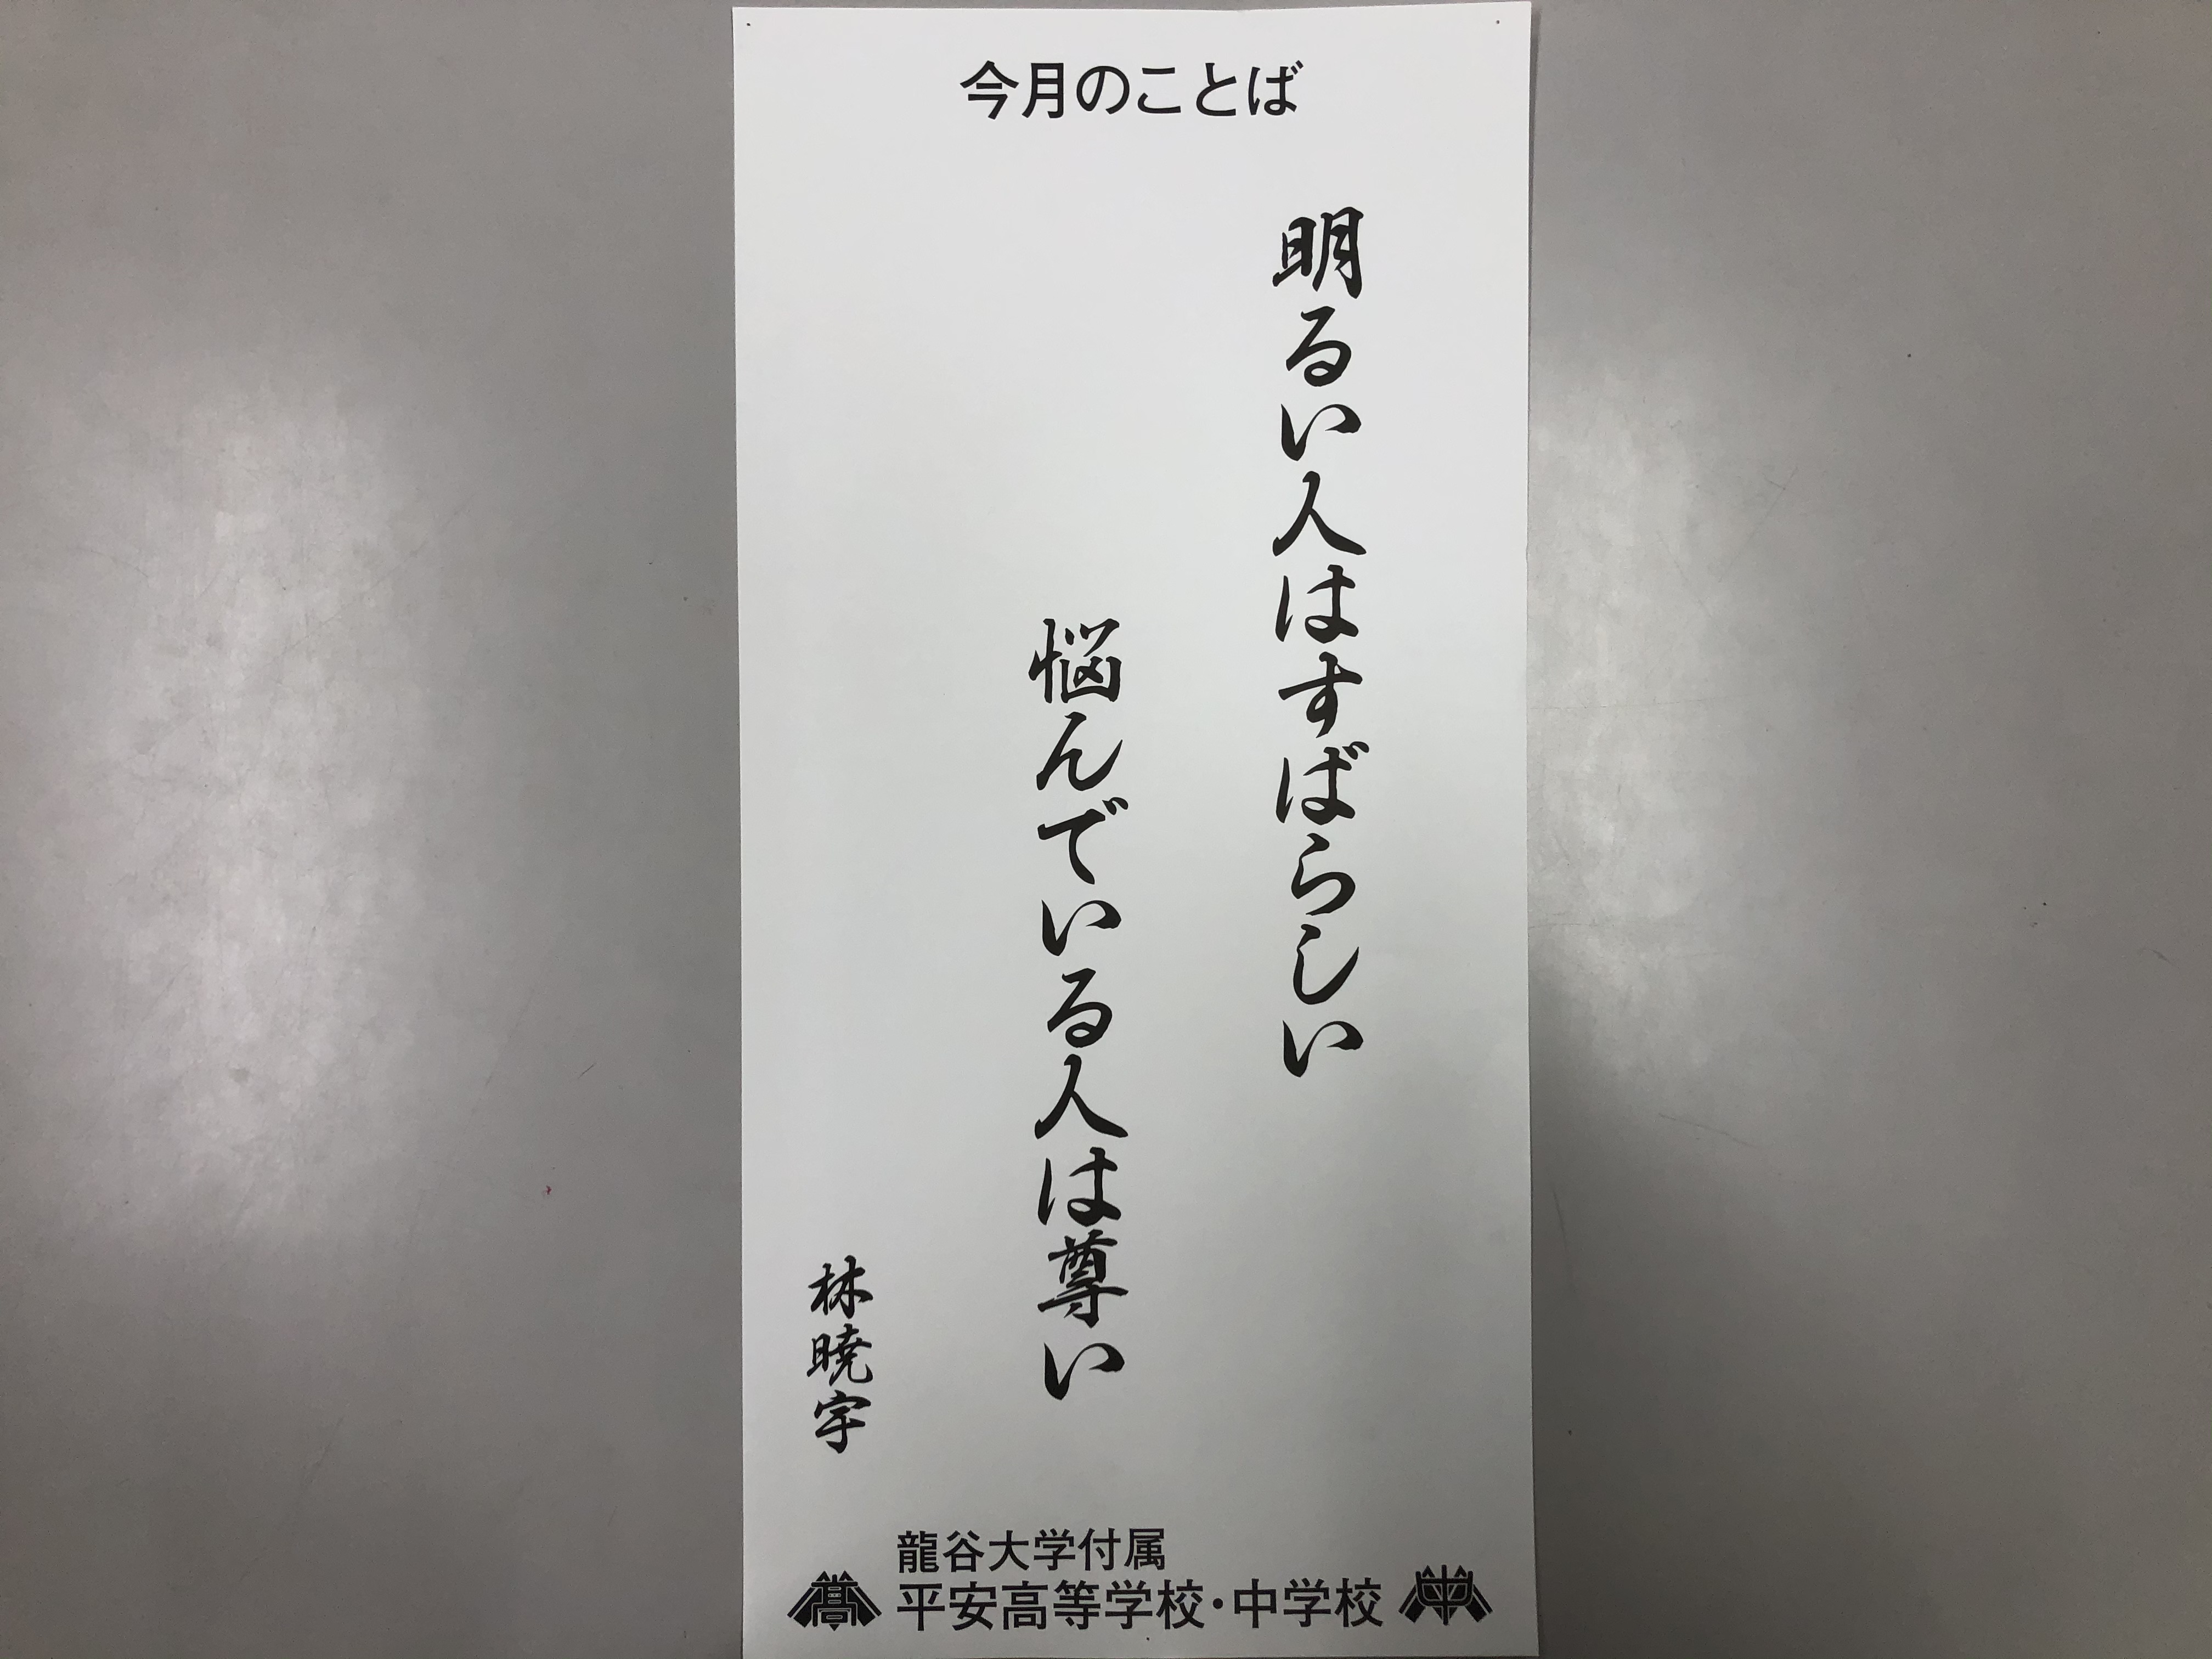 今月のことば
明るい人はすばらしい
悩んでいる人は尊い
林暁宇
龍谷大学付属
平安高等学校・中学校
高
中